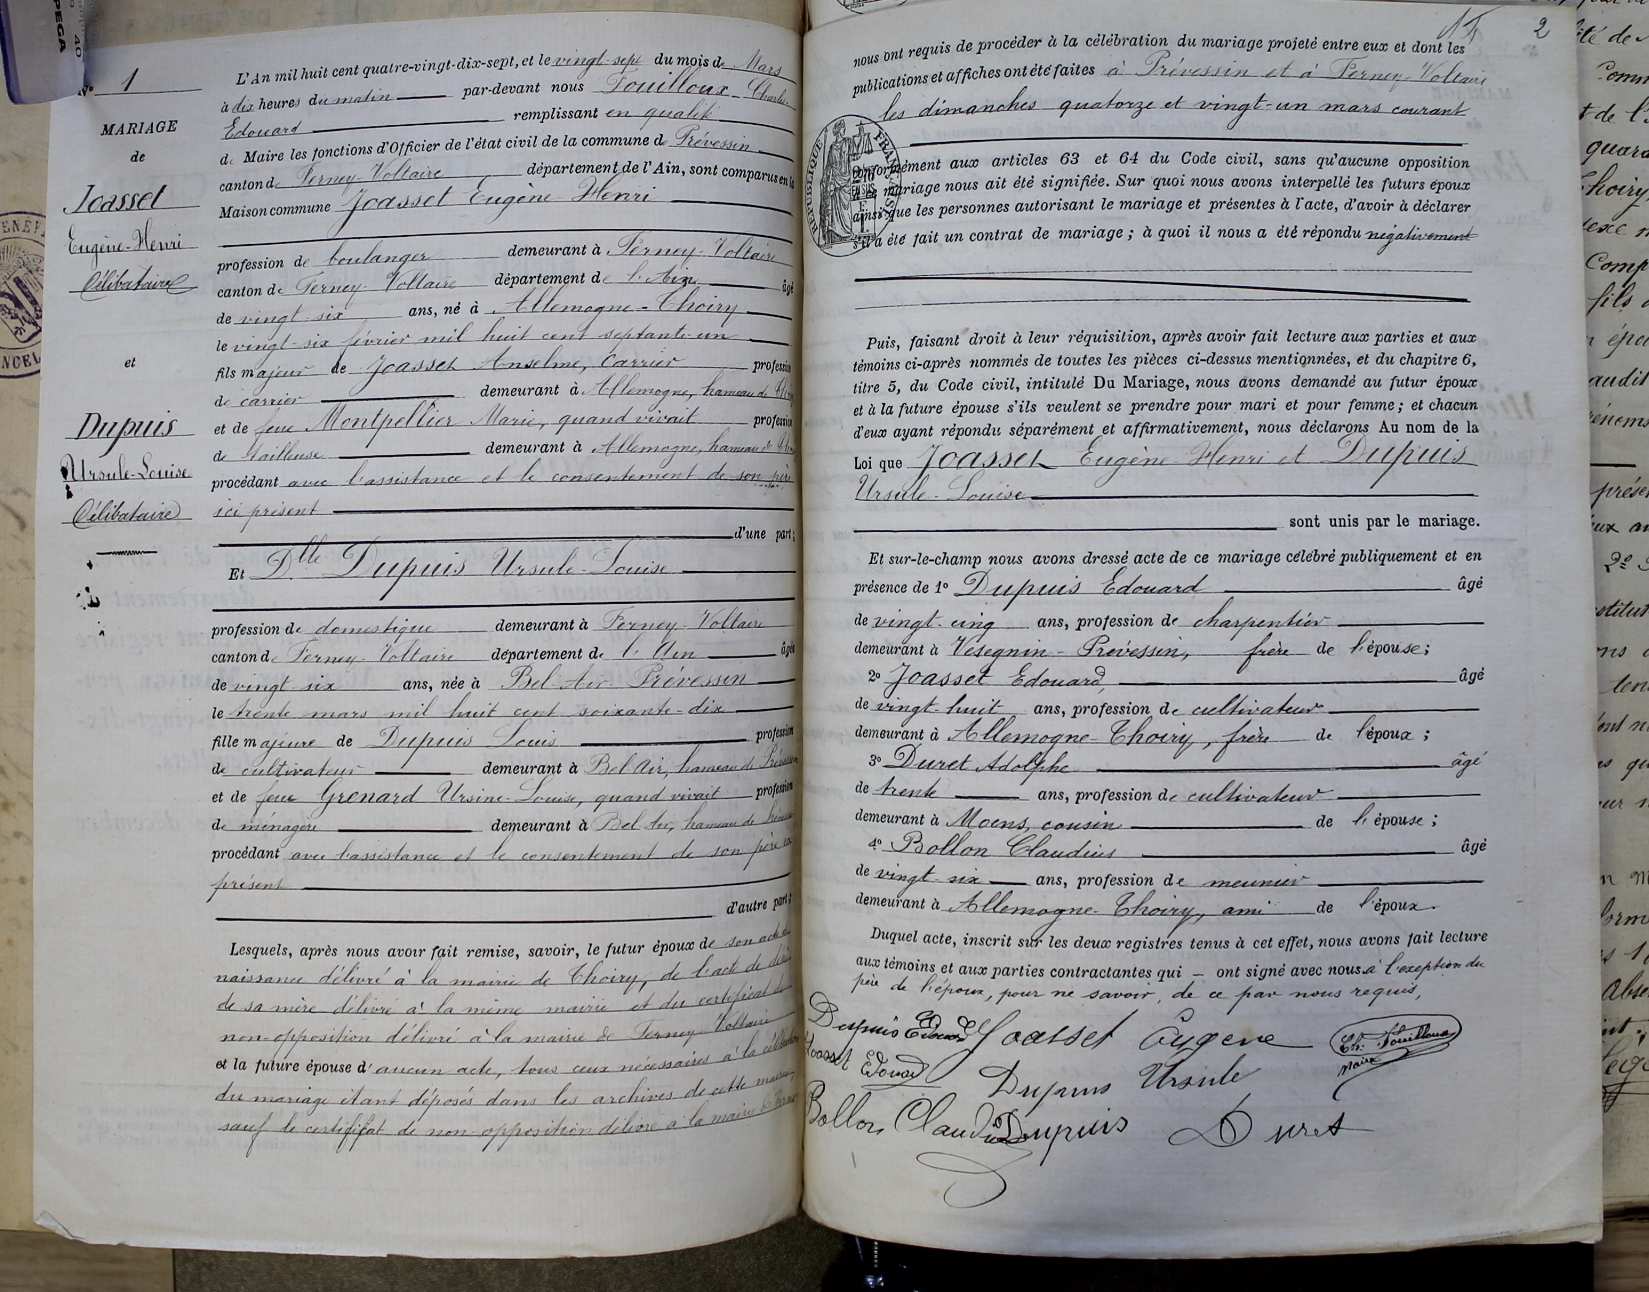 N° 1
MARIAGE
de
Joasset
Eugène-Henri
Célibataire
et
Dupuis
Ursule-Louise
Célibataire
L'An mil huit cent quatre-vingt-dix-sept, et le vingt-sept du mois de Mars
à dix heures du matin par-devant nous Fouilloux Charles
Edouard remplissant en qualité
de Maire les fonctions d'Officier de l'état civil de la commune de Prévessin
canton de Ferney-Voltaire département de l'Ain, sont comparus en la
Maison commune Joasset Eugène Henri
profession de boulanger demeurant à Ferney-Voltaire
canton de Ferney-Voltaire département de l'Ain, âgé
de vingt-six ans, né à Allemogne-Thoiry
le vingt-six février mil huit cent septante-un
fils majeur de Joasset Anselme, Carrier profession
de carrier demeurant à Allemogne, hameau de
et de feue Montpellier Marie, quand vivait profession
de tailleuse demeurant à Allemogne, hameau de
procédant avec l'assistance et le consentement de son père
ici présent
d'une part;
Et Dlle Dupuis Ursule-Louise
profession de domestique demeurant à Ferney-Voltaire
canton de Ferney-Voltaire département de l'Ain âgée
de vingt six ans, née à Bel-Air-Prévessin
le trente mars mil huit cent soixante-dix
fille majeure de Dupuis Louis profession
de cultivateur demeurant à Bel Air, hameau de Prévessin
et de feue Grenard Ursine-Louise, quand vivait profession
de ménagère demeurant à Bel Air, hameau de
procédant avec l'assistance et le consentement de son père ici
présent
d'autre part;
Lesquels, après nous avoir fait remise, savoir, le futur époux de son acte de
naissance délivré à la mairie de Thoiry, de l'acte de décès
de sa mère délivré à la même mairie et du certificat de
non-opposition délivré à la mairie de Ferney-Voltaire
et la future épouse d'aucun acte, tous ceux nécessaires à la célébration
du mariage étant déposés dans les archives de cette mairie,
sauf le certificat de non-opposition délivré à la mairie de Ferney
2
nous ont requis de procéder à la célébration du mariage projeté entre eux et dont les
publications et affiches ont été faites à Prévessin et à Ferney-Voltaire
les dimanches quatorze et vingt-un mars courant
conformément aux articles 63 et 64 du Code civil, sans qu'aucune opposition
à ce mariage nous ait été signifiée. Sur quoi nous avons interpellé les futurs époux
ainsi que les personnes autorisant le mariage et présentes à l'acte, d'avoir à déclarer
s'il a été fait un contrat de mariage; à quoi il nous a été répondu négativement
Puis, faisant droit à leur réquisition, après avoir fait lecture aux parties et aux
témoins ci-après nommés de toutes les pièces ci-dessus mentionnées, et du chapitre 6,
titre 5, du Code civil, intitulé Du Mariage, nous avons demandé au futur époux
et à la future épouse s'ils veulent se prendre pour mari et pour femme; et chacun
d'eux ayant répondu séparément et affirmativement, nous déclarons Au nom de la
Loi que Joasset Eugène-Henri et Dupuis
Ursule-Louise
sont unis par le mariage.
Et sur-le-champ nous avons dressé acte de ce mariage célébré publiquement et en
présence de 1° Dupuis Edouard âgé
de vingt-cinq ans, profession de charpentier
demeurant à Vésegnin-Prévessin, frère de l'épouse;
2° Joasset Edouard, âgé
de vingt-huit ans, profession de cultivateur
demeurant à Allemogne-Thoiry, frère de l'époux;
3° Duret Adolphe âgé
de trente ans, profession de cultivateur
demeurant à Moens, cousin de l'épouse;
4° Bollon Claudius âgé
de vingt-six ans, profession de meunier
demeurant à Allemogne-Thoiry, ami de l'époux.
Duquel acte, inscrit sur les deux registres tenus à cet effet, nous avons fait lecture
aux témoins et aux parties contractantes qui — ont signé avec nous à l'exception du
père de l'époux, pour ne savoir, de ce par nous requis,
Dupuis Edouard Joasset Eugene Ch. Fouilloux
maire
Joasset Edouard Dupuis Ursule
Bollon Claudius Dupuis Duret